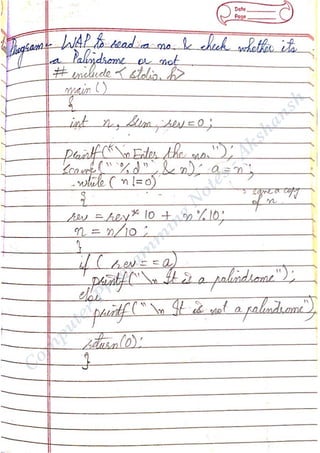 Date
Page
Program - WAP to read a no. & check whether its
a Palindrome or not
# include < stdio. h>
main ()
{
int n, sum, rev = 0;
printf("\n Enter the no.");
scanf(" %d", & n); a = n;
while ( n != 0)
{
= save a copy
of n.
rev = rev * 10 + n % 10;
n = n/10 ;
}
if ( rev == a)
printf("\n It is a palindrome");
else
printf("\n It is not a palindrome")
return(0);
}
Computer Programming Notes Akshansh